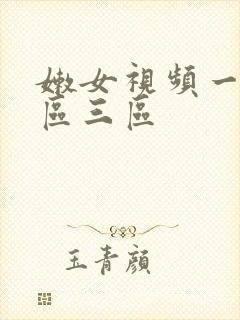 嫩女視頻一
區三區
玉青顏